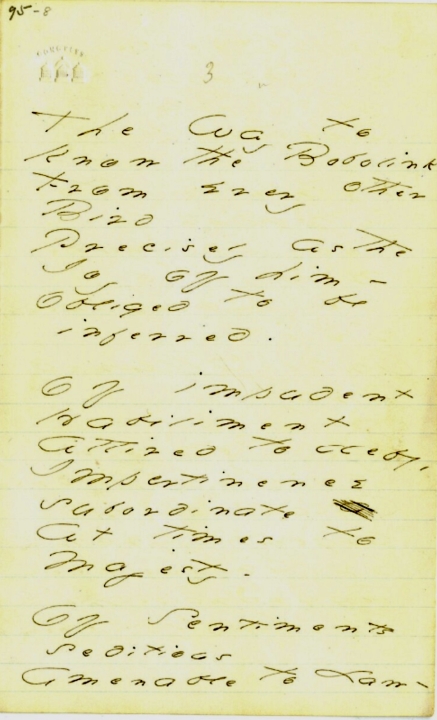 95-8
CONGRESS
3
The Way to
know the Bobolink
From every other
Bird
Precisely as the
Joy of him -
Obliged to be
inferred.
Of impudent
Habiliment
Attired to defy,
Impertinence
subordinate
At times to
Majesty.
Of Sentiments
seditious
Amenable to Law -